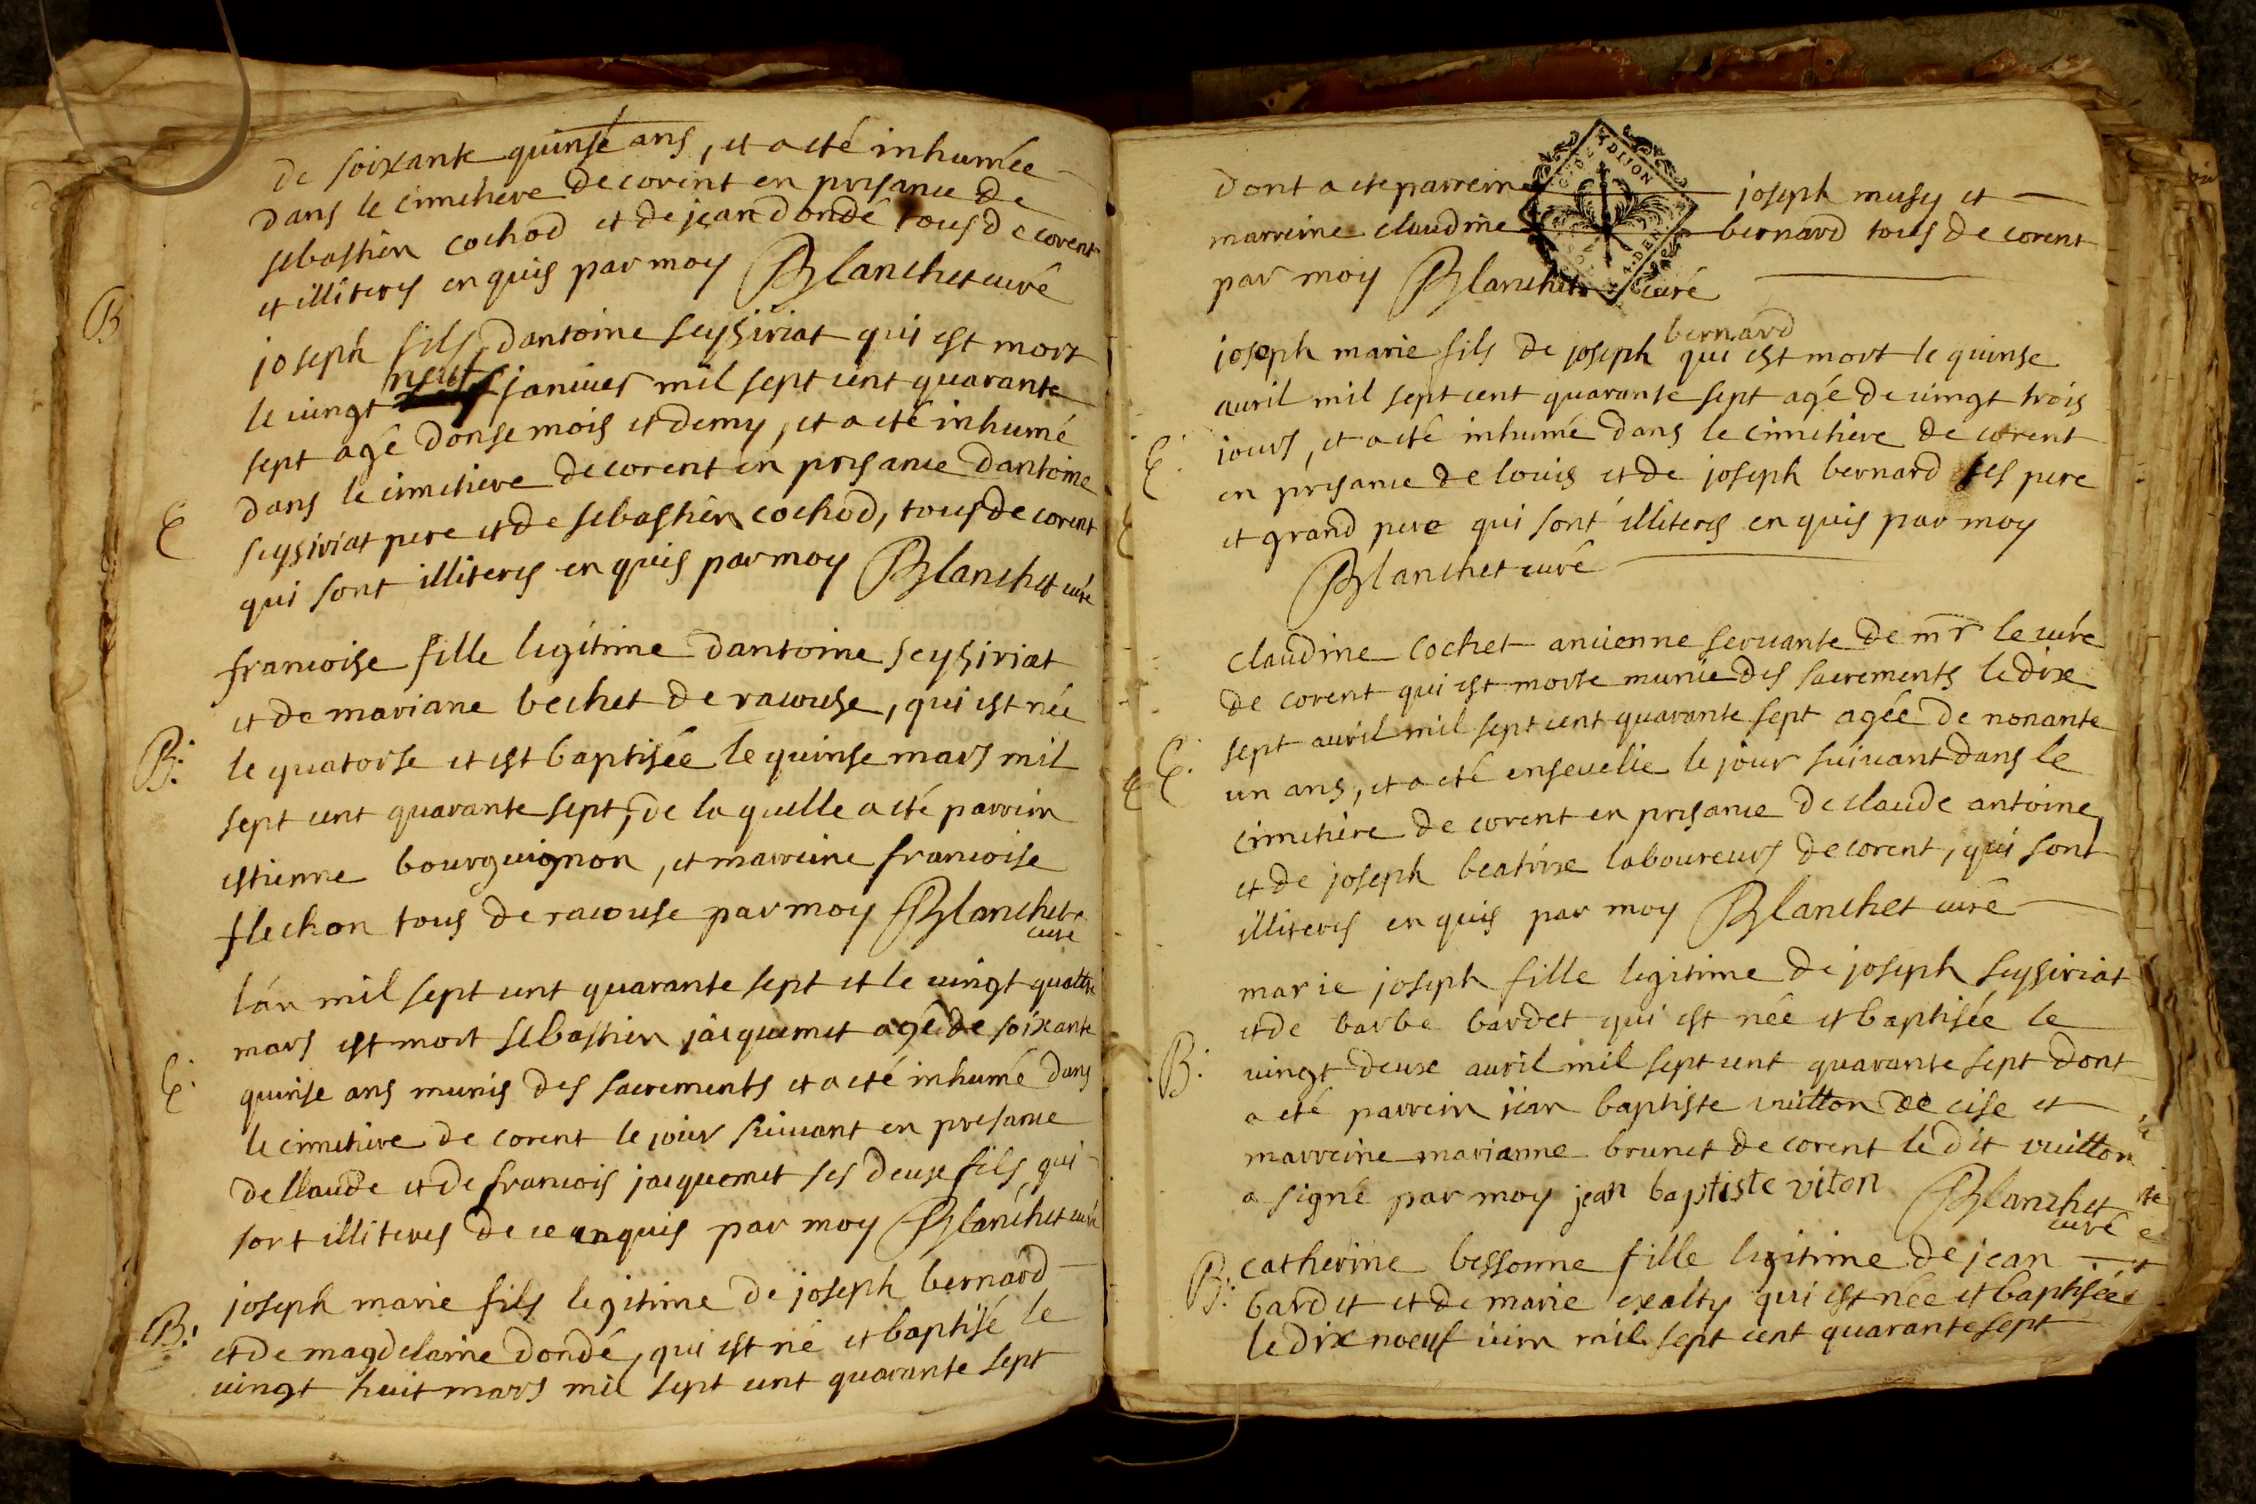 de soixante quinse ans, et a eté inhumée
dans le cimetiere de corent en presance de
sebastien cochod et de jean dondé tous de corent
et illiteres enquis par moy Blanchet curé
B
joseph fils dantoine seysiriat qui est mort
le vingt neuf janvier mil sept cent quarante
sept agé donse mois et demy, et a eté inhumé
dans le cimetiere de corent en presance dantoine
E
seysiriat pere et de sebastien cochod, tous de corent
qui sont illiteres enquis par moy Blanchet curé
francoise fille legitime dantoine seysiriat
et de mariane bechet de racouse, qui est née
B:
le quatorse et est baptisée le quinse mars mil
sept cent quarante sept, de la quelle a eté parrein
estienne bourguignon, et marreine francoise
flechon tous de racouse par moy Blanchet
curé
lán mil sept cent quarante sept et le vingt quattre
mars est mort sebastien jacquemet agé de soixante
E:
quinse ans munis des sacrements et a eté inhumé dans
le cimetiere de corent le jour suivant en presance
de claude et de francois jacquemet ses deux fils, qui
sont illiteres de ce enquis par moy Blanchet curé
joseph marie fils legitime de joseph bernard
B:
et de magdelaine dondé, qui est né et baptisé le
vingt huit mars mil sept cent quarante sept
DIJON
4. DEN
dont a ete parrein joseph musy et
marreine claudine bernard tous de corent
par moy Blanchet curé
bernard
joseph marie fils de joseph qui est mort le quinse
avril mil sept cent quarante sept agé de vingt trois
E:
jours, et a eté inhumé dans le cimetiere de corent
en presance de louis et de joseph bernard ses pere
et grand pere qui sont illiteres enquis par moy
Blanchet curé
claudine cochet ancienne servante de mr le curé
de corent qui est morte munie des sacrements le dix
sept avril mil sept cent quarante sept agée de nonante
E:
un ans, et a eté ensevelie le jour suivant dans le
cimetiere de corent en presance de claude antoine,
et de joseph beatrix laboureurs de corent, qui sont
illiteres enquis par moy Blanchet curé
marie joseph fille legitime de joseph seysiriat
et de barbe bardet qui est née et baptisée le
B:
vingt deux avril mil sept cent quarante sept dont
a eté parrein jean baptiste vuitton de cise et
marreine marianne brunet de corent le dit vuitton
a signé par moy jean baptiste viton Blanchet
curé
catherine bessonne fille legitime de jean
B:
bardet et de marie exalty qui est née et baptisée
le dix noeuf iuin mil sept cent quarante sept